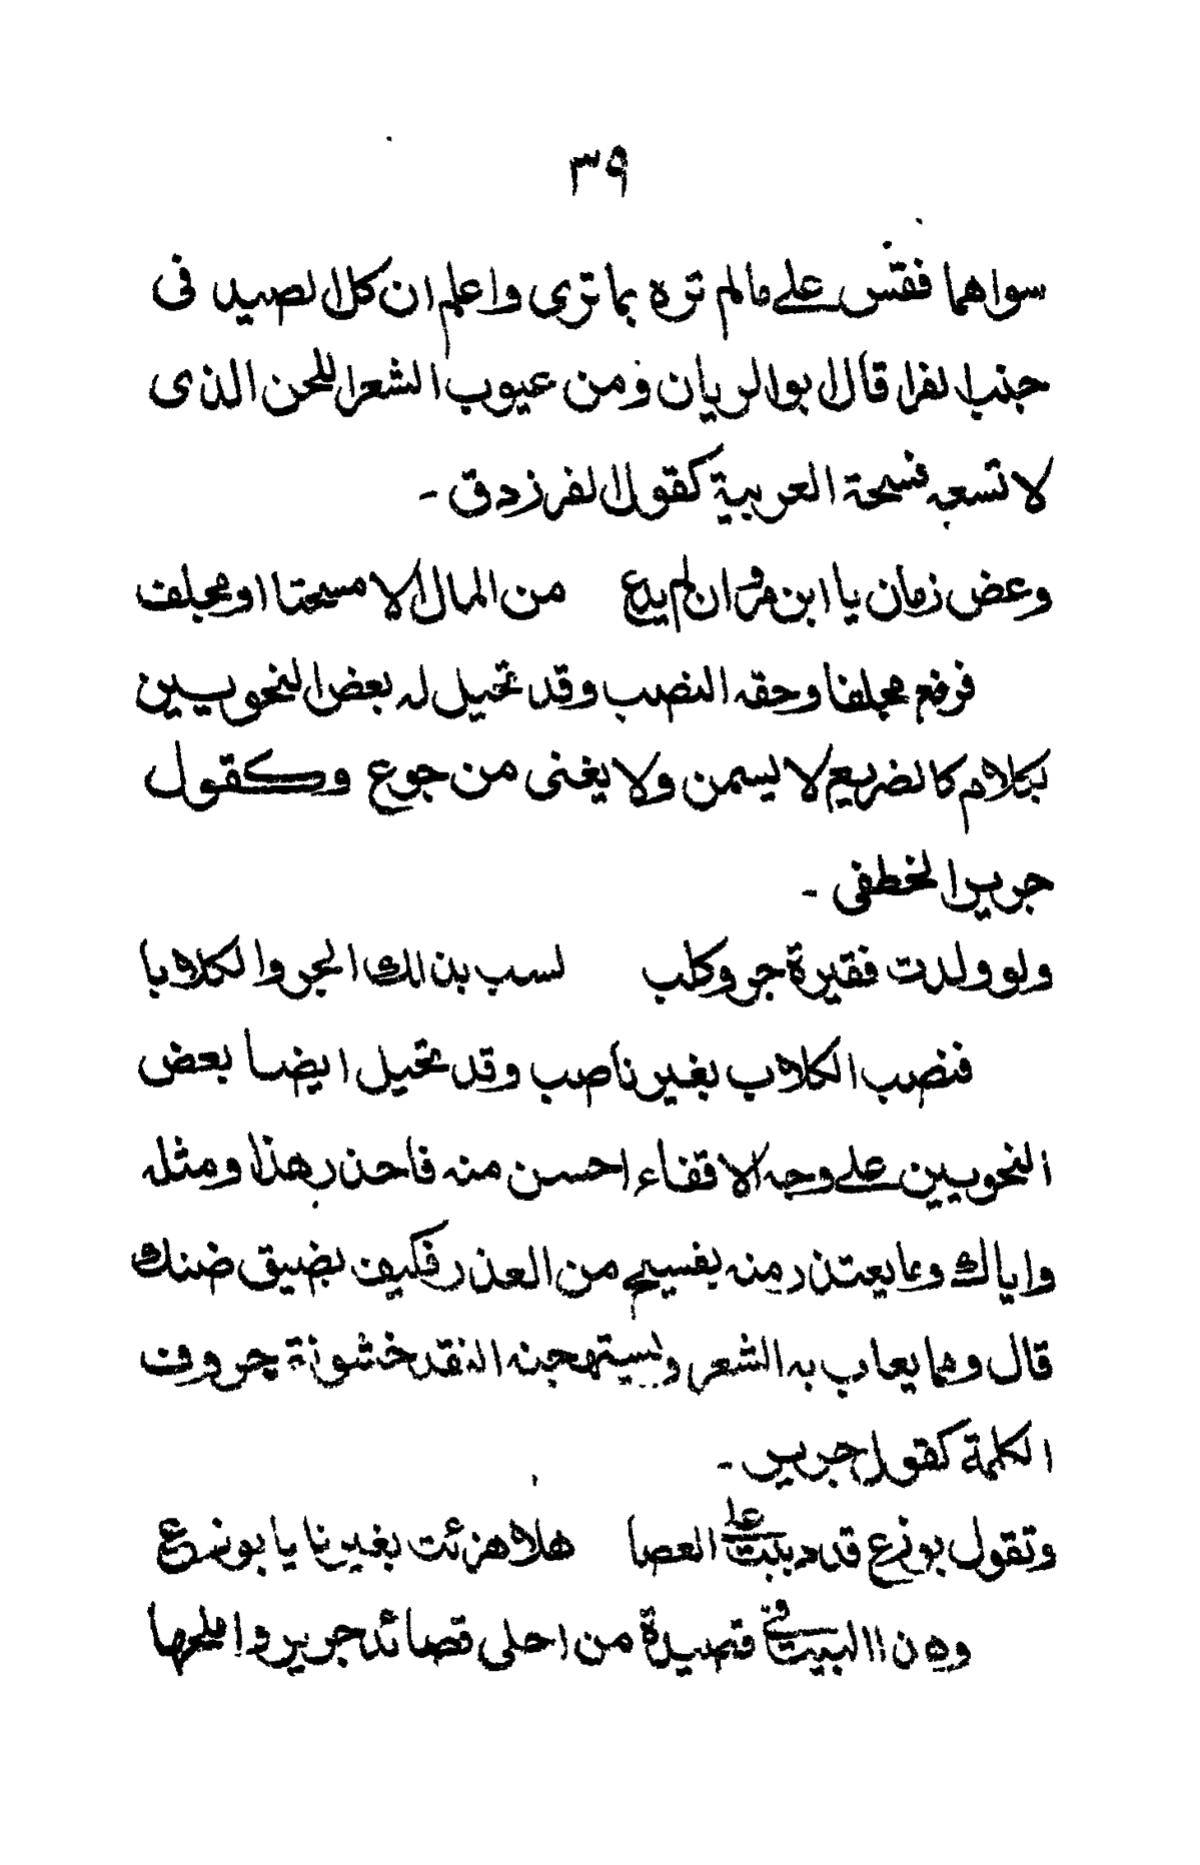 ٣٩
سواهما فقس على مالم تره بما ترى واعلم ان كل الصيد فى
جنب الفرا قال ابو الريان ومن عيوب الشعر اللحن الذى
لا تسعه فسحة العربية كقول الفرزدق -
وعض زمان يا ابن مروان لم يدع من المال الا مسحتا او مجلف
فرفع مجلفا وحقه النصب وقد تحيل له بعض النحويين
بكلام كالضريع لا يسمن ولا يغنى من جوع وكقول
جرير الخطفى -
ولو ولدت فقيرة جرو كلب لسب بذلك الجرو الكلابا
فنصب الكلاب بغير ناصب وقد تحيل ايضا بعض
النحويين على وجه الاقفاء احسن منه فاحذر هذا ومثله
واياك وما يعتذر منه بفسيح من العذر فكيف بضيق ضنك
قال ومما يعاب به الشعر ويستهجنه النقد خشونة حروف
الكلمة كقول جرير -
وتقول بوزع قد دببت على العصا هلا هزئت بغيرنا يا بوزع
وهذا البيت فى قصيدة من احلى قصائد جرير واملحها